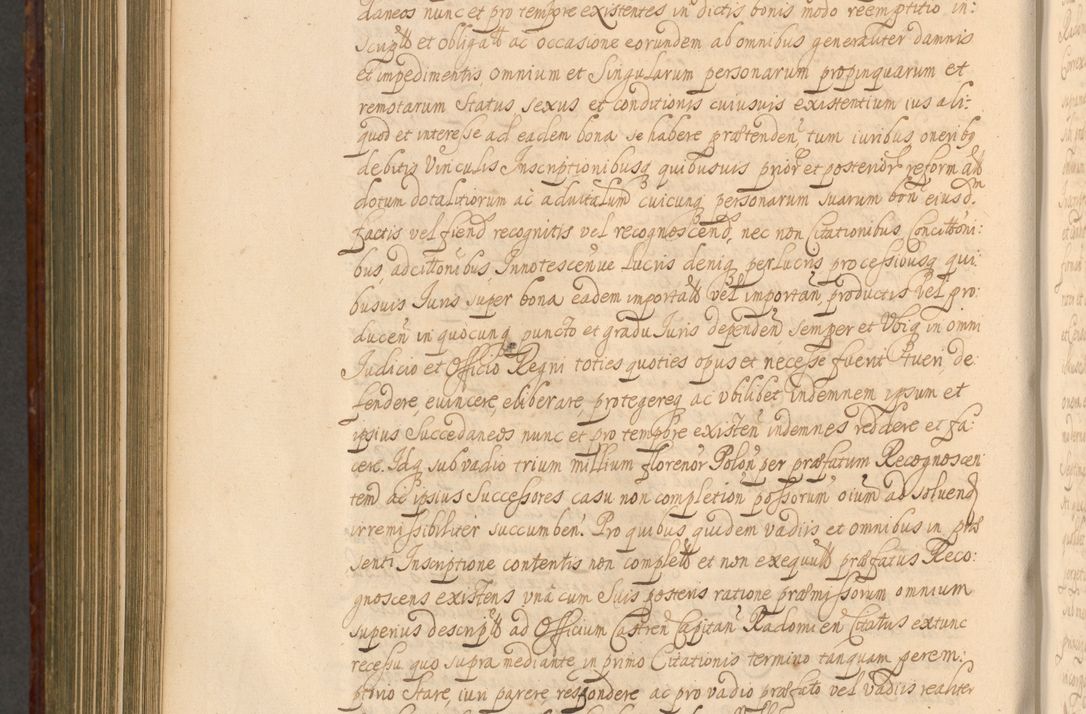 daneos nunc et pro tempore existentes in dictis bonis modo reemptitio in:
script et obligatt ac occasione eorundem ab omnibus generaliter damnis
et impedimentis, omnium et Singularum personarum propinquarum et
remotarum status sexus et conditionis cuiusuis existentium ius ali:
quod et interesse ad eadem bona se habere prætenden, tum iuribus, oneribq
debitis Vinculis Inscriptionibusq quibusuis prior et posterior reform att
dotum dotalitiorum ac aduitalium cuicunq personarum suarum bon eiusdm
factis vel fiend recognitis vel recognoscend, nec non Citationibus Concittoni:
bus, adcittonibus Innotescenue lucris deniq perlucris processibusq qui:
busuis Iuris super bona eadem importatt vel importan, productis vel pro:
ducen in quocunq puncto et gradu Iuris dependen, semper et Ubiq in omni
Iudicio et Officio Regni toties quoties opus et necesse fuerit tueri, de:
fendere, euincere, eliberare, protegereq ac ubilibet indemnem ipsum et
ipsius Succedaneos nunc et pro tempore existen indemnes reddere et fa:
cere. Idq sub vadio trium millium florenor Polon per præfatum Recognoscen
tem ac ipsius Successores casu non completion possorum oium ad soluend
irremissibiliter succumben. Pro quibus quidem vadiis et omnibus in præ
senti Inscriptione contentis non complett et non exequutt præfatus Reco:
gnoscens existens una cum Suis posteris ratione præmissorum omnium
superius descriptt ad Officium Castren Capitan Radomien Citatus extunc
recessu quo supra mediante, in primo Citationis termino tanquam perem:
ptorio stare, iuri parere, respondere ac pro vadio præfato vel vadiis realiter